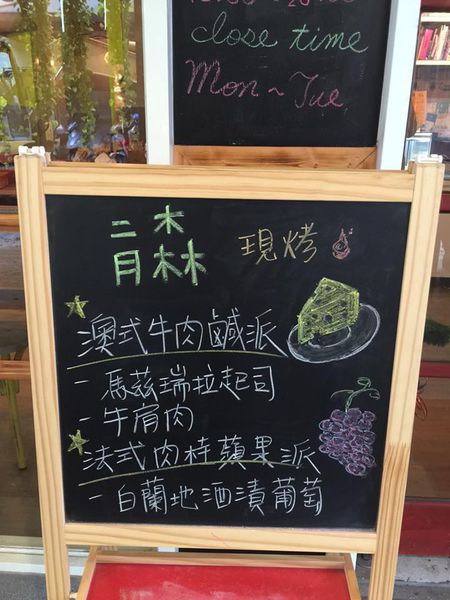 close time
Mon ~ Tue
二月森林 現烤
澳式牛肉鹹派
- 馬茲瑞拉起司
- 牛肩肉
法式肉桂蘋果派
- 白蘭地酒漬葡萄